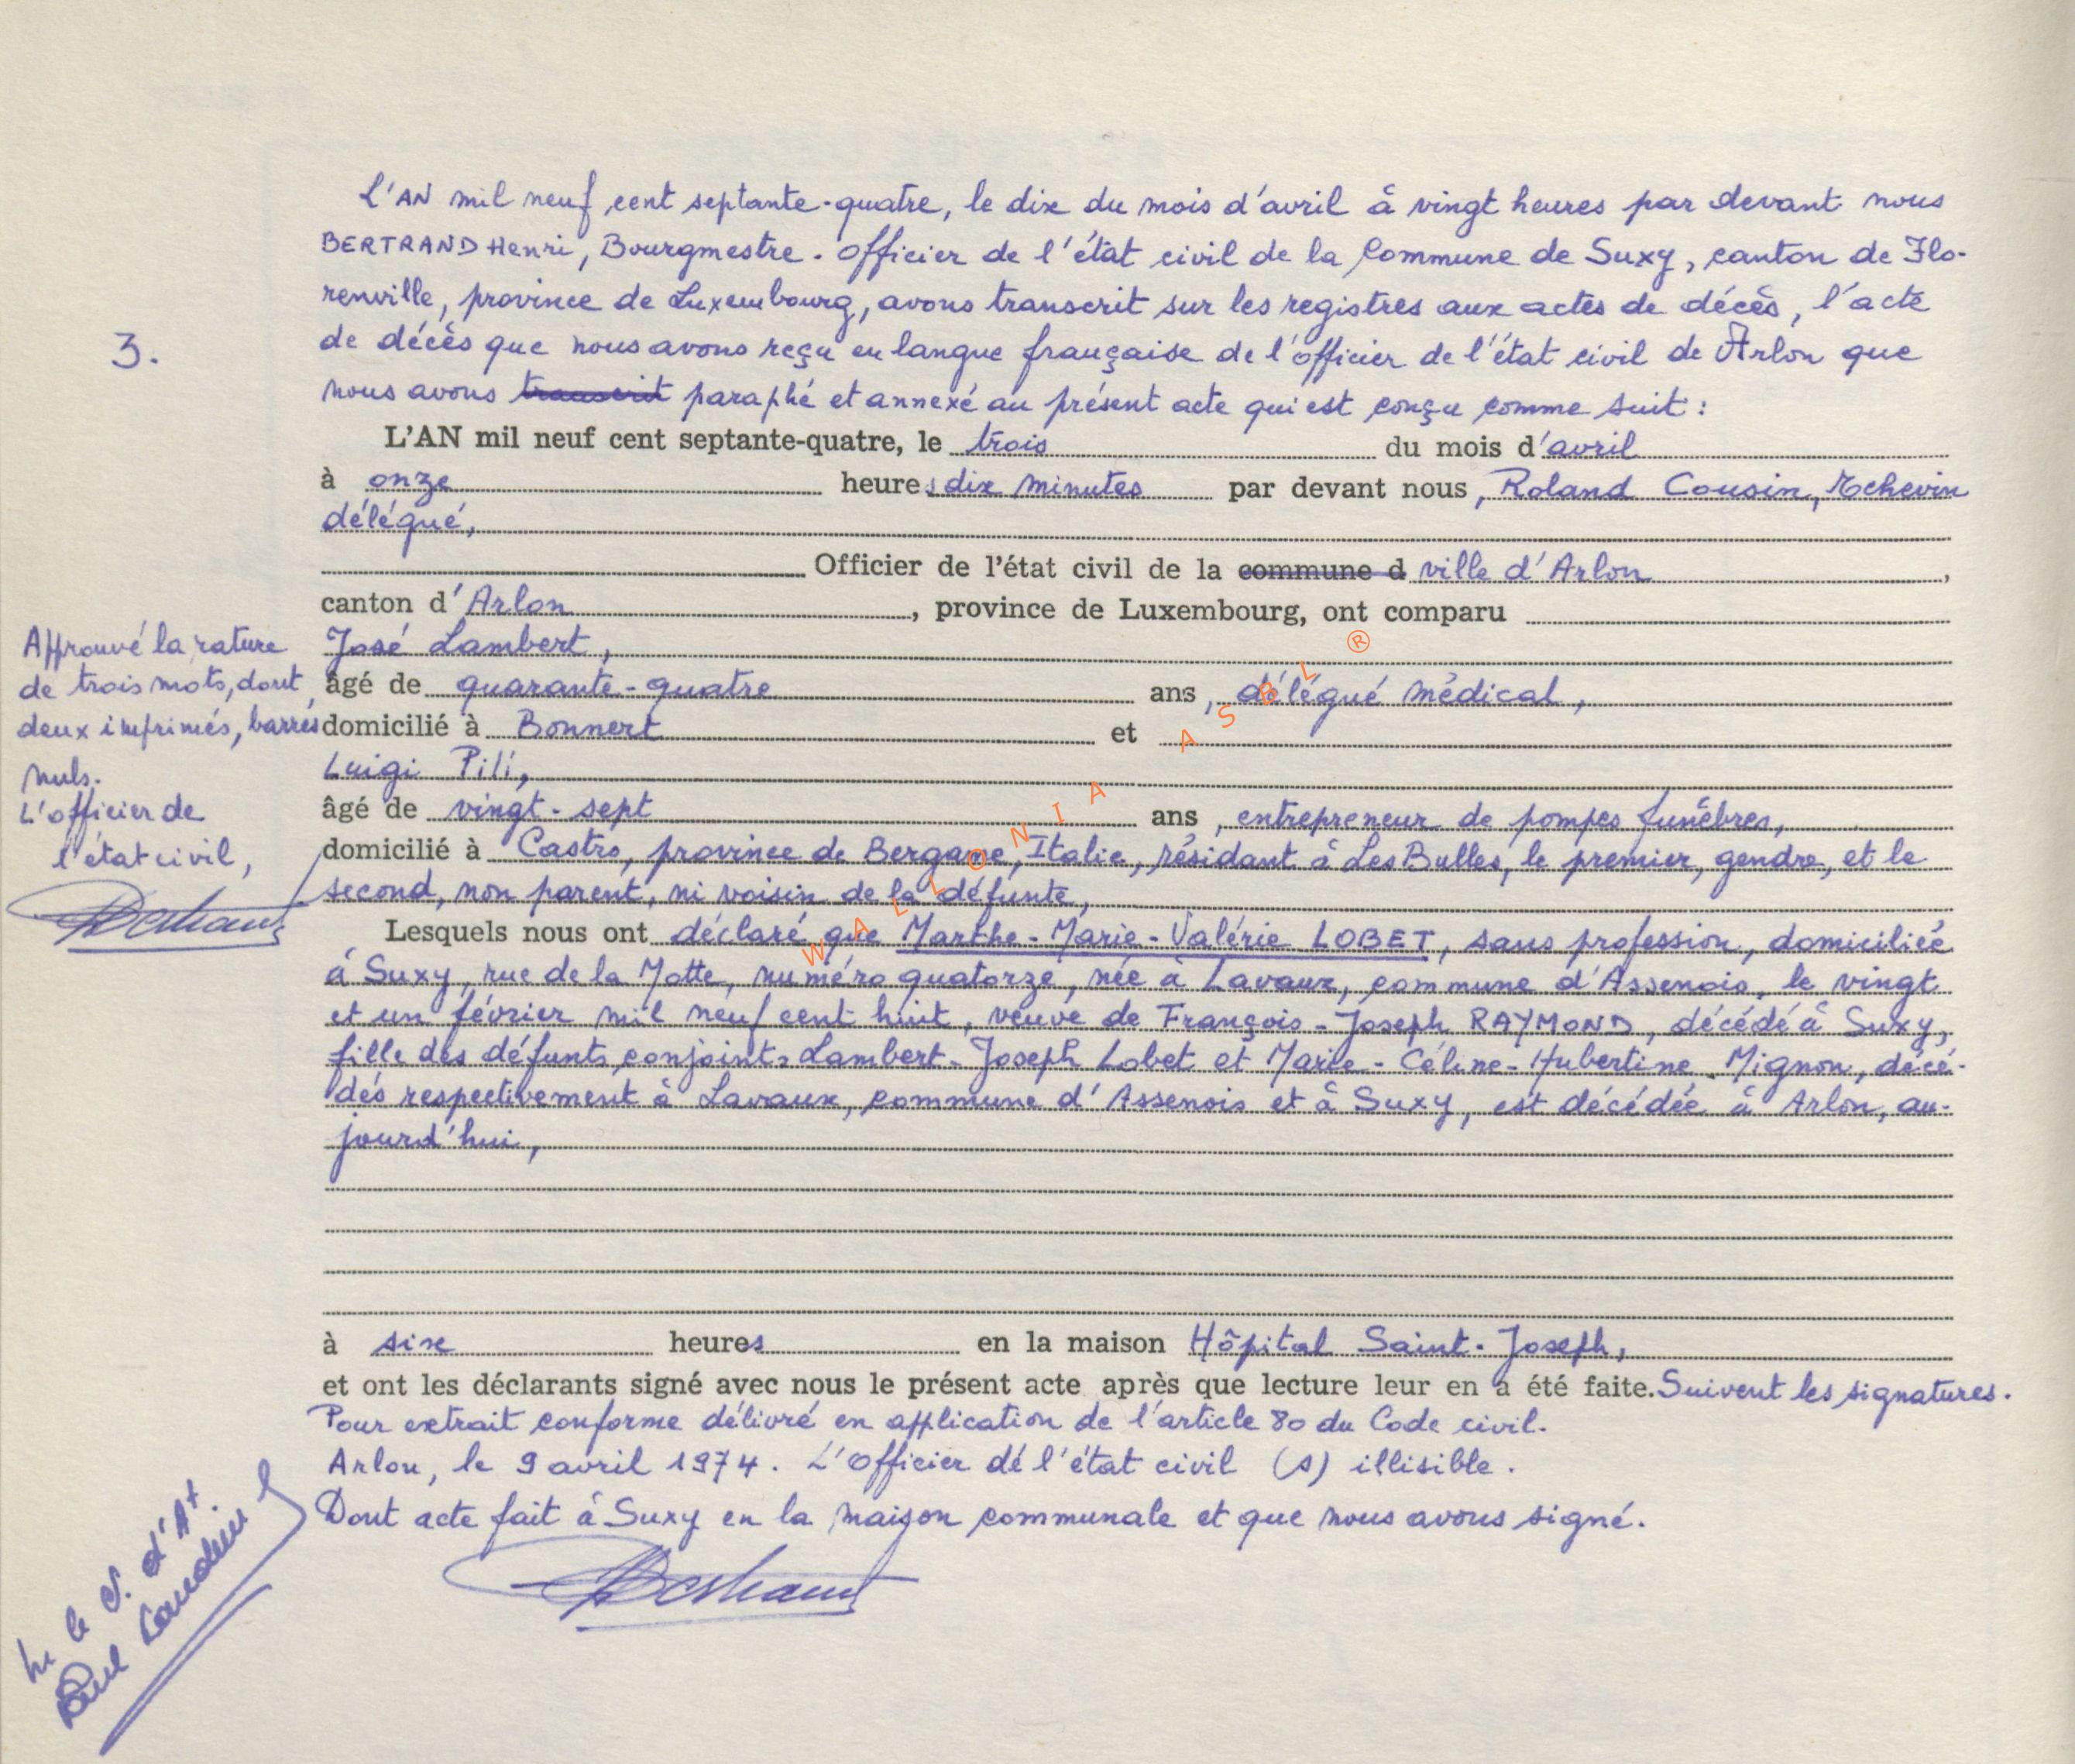 L'AN mil neuf cent septante-quatre, le dix du mois d'avril à vingt heures par devant nous
BERTRAND Henri, Bourgmestre. Officier de l'état civil de la Commune de Suxy, canton de Flo-
renville, province de Luxembourg, avons transcrit sur les registres aux actes de décès, l'acte
3.
de décès que nous avons reçu en langue française de l'officier de l'état civil de Arlon que
nous avons transcrit paraphé et annexé au présent acte qui est conçu comme suit :
L'AN mil neuf cent septante-quatre, le trois du mois d'avril
à onze heures dix minutes par devant nous, Roland Cousin, Echevin
délégué,
Officier de l'état civil de la commune d ville d'Arlon,
canton d'Arlon, province de Luxembourg, ont comparu
José Lambert,
âgé de quarante-quatre ans, délégué médical,
domicilié à Bonnert et
Luigi Pili,
âgé de vingt-sept ans, entrepreneur de pompes funèbres,
domicilié à Castro, province de Bergame, Italie, résidant à Les Bulles, le premier, gendre, et le
second, non parent, ni voisin de la défunte,
Approuvé la rature
de trois mots, dont
deux imprimés, barrés
nuls.
L'officier de
l'état civil,
Lesquels nous ont déclaré que Marthe-Marie-Valérie LOBET, sans profession, domiciliée
à Suxy, rue de la Motte, numéro quatorze, née à Lavaux, commune d'Assenois, le vingt
et un février mil neuf cent huit, veuve de François-Joseph RAYMOND, décédé à Suxy,
fille des défunts conjoints Lambert-Joseph Lobet et Marie-Céline-Hubertine Mignon, décé-
dés respectivement à Lavaux, commune d'Assenois et à Suxy, est décédée à Arlon, au-
jourd'hui,
à six heures en la maison Hôpital Saint-Joseph,
et ont les déclarants signé avec nous le présent acte après que lecture leur en a été faite. Suivent les signatures.
Pour extrait conforme délivré en application de l'article 80 du Code civil.
Arlon, le 9 avril 1974. L'Officier de l'état civil (s) illisible.
Dont acte fait à Suxy en la maison communale et que nous avons signé.
WALLONIA ASBL ®